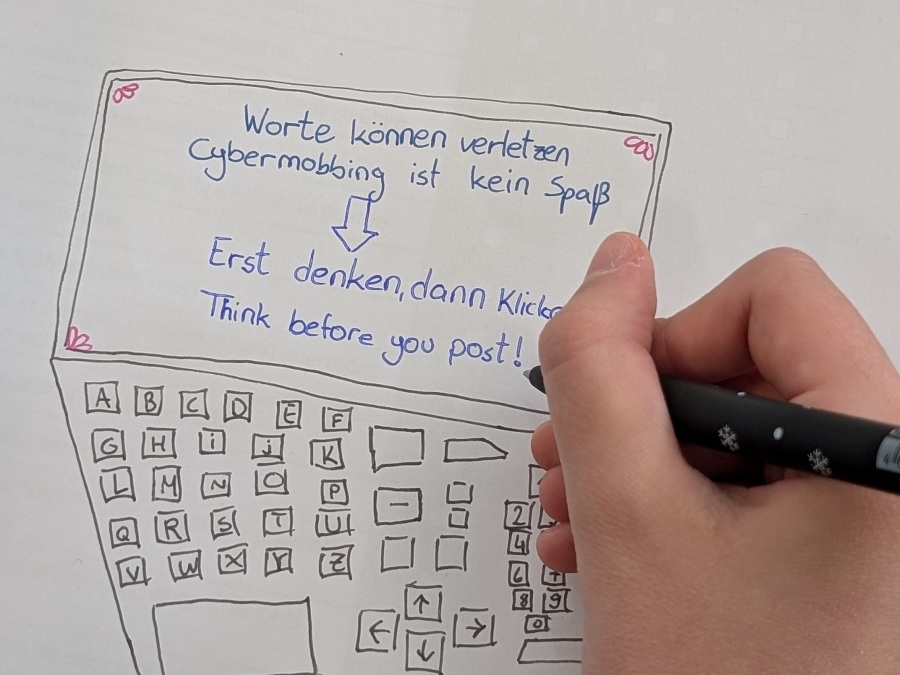 Worte können verletzen
Cybermobbing ist kein Spaß
Erst denken, dann
Think before you post!
A B C D E F
G H i j K
L M N O P
Q R S T U
V W X Y Z
2
4
6 +
8 9
0